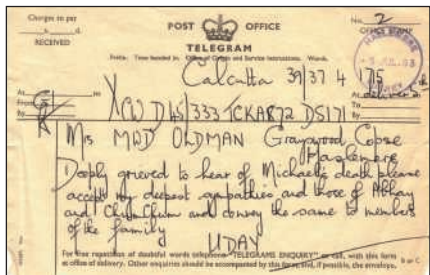 Charges to pay
s. d.
RECEIVED
POST OFFICE
TELEGRAM
No. 2
OFFICE STAMP
HASLEMERE
Prefix. Time handed in. Office of Origin and Service Instructions. Words.
Calcutta 39/37 4 1715
At
From
By
At
To
By
XCWD145/333 TCKAR72 DS171
Mrs MWD OLDMAN Grayswood Copse
Haslemere
Deeply grieved to hear of Michaels death please
accept my deepest sympathies and those of Abhay
and ChumChum and convey the same to members
of the family
UDAY
For free repetition of doubtful words telephone "TELEGRAMS ENQUIRY" or call, with this form
at office of delivery. Other enquiries should be accompanied by this form, and, if possible, the envelope.
B or C